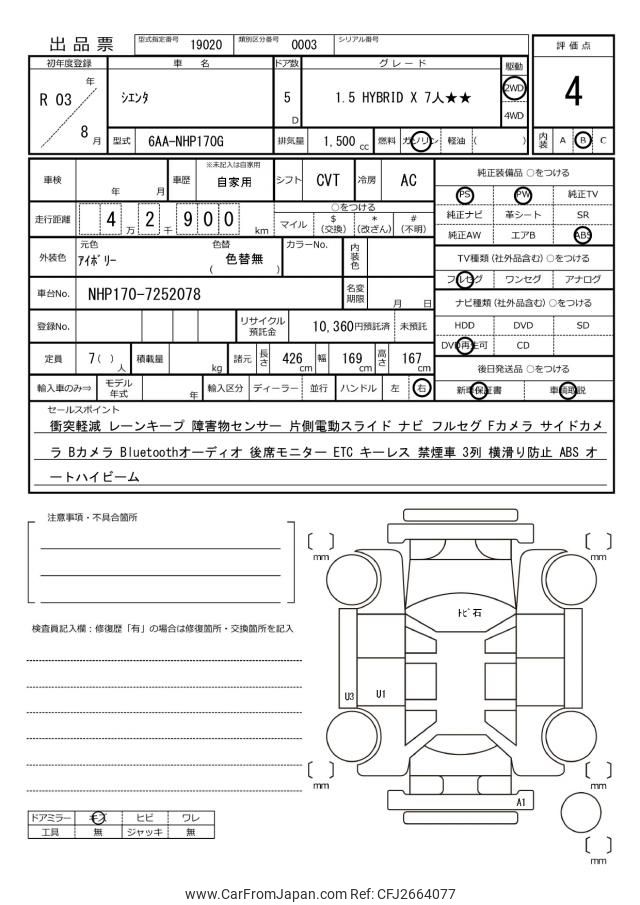 出品票 型式指定番号 19020 類別区分番号 0003 シリアル番号
評価点
4
内装 A B C
初年度登録 車名 ドア数 グレード 駆動
R 03 年 8 月 シエンタ 5 D 1.5 HYBRID X 7人★★ 2WD
4WD
型式 6AA-NHP170G 排気量 1,500 cc 燃料 ガソリン 軽油 ( )
車検 年 月 車歴 ※未記入は自家用 自家用 シフト CVT 冷房 AC
走行距離 4 万 2 千 9 0 0 km
○をつける
マイル $ (交換) * (改ざん) # (不明)
外装色 元色 アイボリー 色替 色替無 ( ) カラーNo. 内装色
車台No. NHP170-7252078 名変期限 月 日
登録No. リサイクル預託金 10,360円預託済 未預託
定員 7( ) 人 積載量 kg 諸元 長さ 426 cm 幅 169 cm 高さ 167 cm
輸入車のみ⇒ モデル年式 年 輸入区分 ディーラー 並行 ハンドル 左 右
純正装備品 ○をつける
PS PW 純正TV
純正ナビ 革シート SR
純正AW エアB ABS
TV種類 (社外品含む) ○をつける
フルセグ ワンセグ アナログ
ナビ種類 (社外品含む) ○をつける
HDD DVD SD
DVD再生可 CD
後日発送品 ○をつける
新車保証書 車輌取説
セールスポイント
衝突軽減 レーンキープ 障害物センサー 片側電動スライド ナビ フルセグ Fカメラ サイドカメ
ラ Bカメラ Bluetoothオーディオ 後席モニター ETC キーレス 禁煙車 3列 横滑り防止 ABS オ
ートハイビーム
注意事項・不具合箇所
検査員記入欄：修復歴「有」の場合は修復箇所・交換箇所を記入
ドアミラー キズ ヒビ ワレ
工具 無 ジャッキ 無
mm
mm
トビ石
U3 U1
mm
mm
A1
mm
www.CarFromJapan.com Ref: CFJ2664077